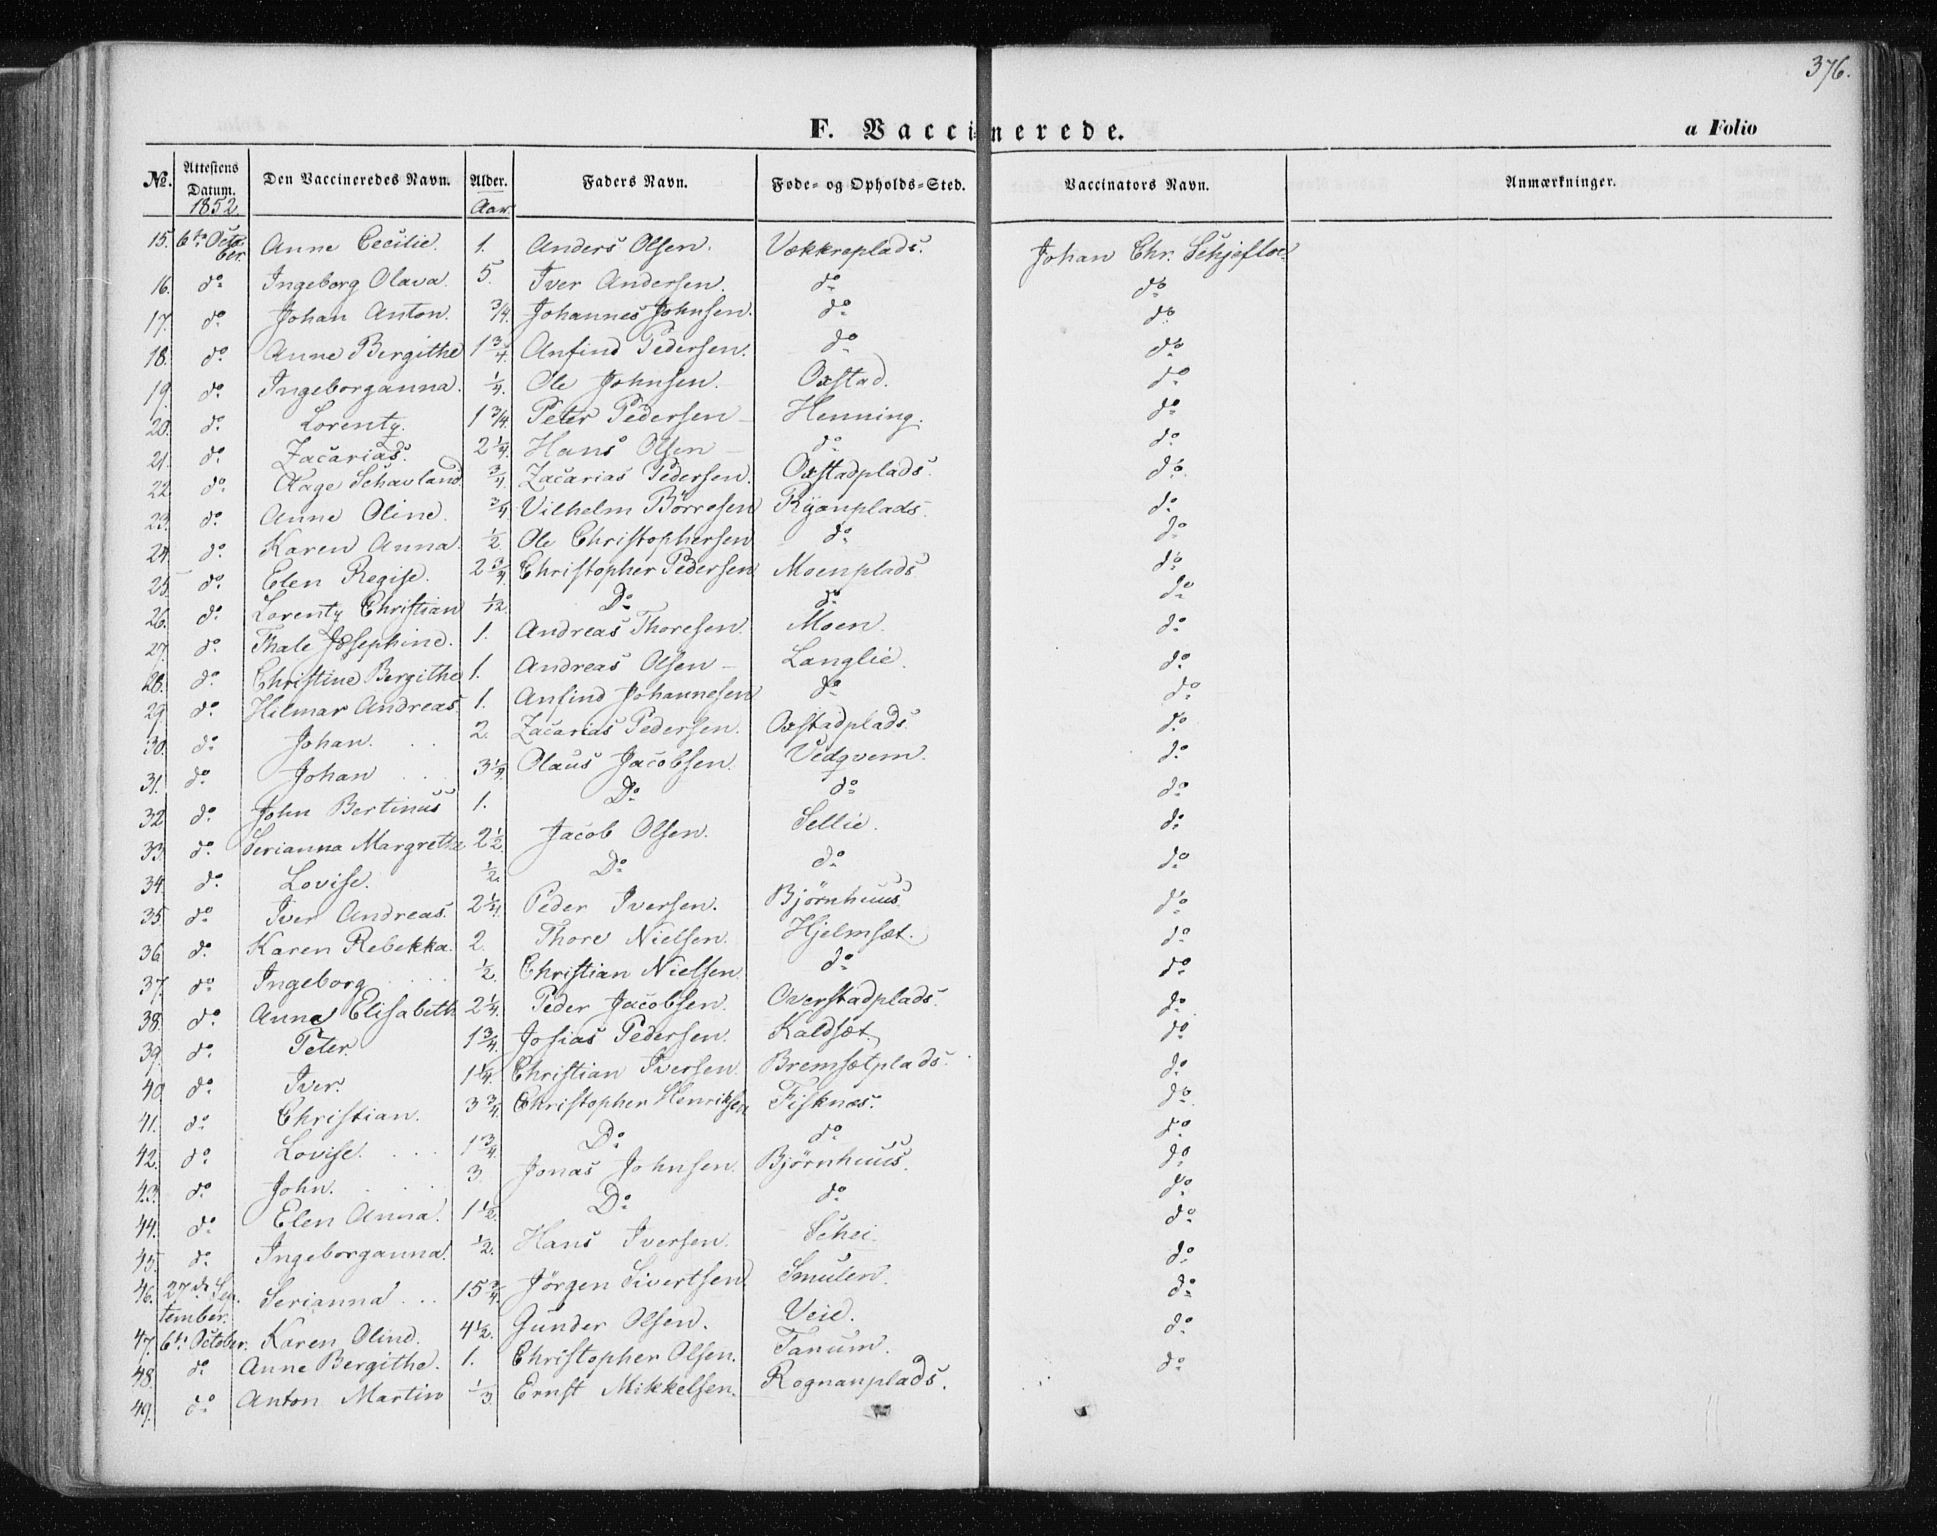 376.
F. Vaccinerede. a Folio
No. Attestens Datum. Den Vaccineredes Navn. Alder. Faders Navn. Føde- og Opholds-Sted. Vaccinators Navn. Anmærkninger.
1852 Aar
15. 6te October. Anne Cecilie. 1. Anders Olsen. Vækkreplads. Johan Chr. Schjefloe
16. do Ingeborg Olava. 5. Iver Andersen. do do
17. do Johan Anton. 3/4. Johannes Johnsen. do do
18. do Anne Bergithe 1 3/4. Anfind Pedersen. do do
19. do Ingeborganna. 1/4. Ole Johnsen. Oxstad. do
20. do Lorentz. 1 3/4. Peter Pedersen - Henning. do
21. do Zacarias. 2 1/4. Hans Olsen - do do
22. do Aage Schavland 3/4. Zacarias Pedersen. Oxstadplads. do
23. do Anne Oline. 3/4. Vilhelm Börresen Ryanplads. do
24. do Karen Anna. 1/2. Ole Christophersen do do
25. do Elen Regise. 2 3/4. Christopher Pedersen Moenplads do
26. do Lorentz Christian 1/12. Do do do
27. do Thale Josephine. 1. Andreas Thoresen. Moen. do
28. do Christine Bergithe 1. Andreas Olsen - Langlie. do
29. do Hilmar Andreas 1. Anfind Johannesen do do
30. do Johan. . . 2. Zacarias Pedersen. Oxstadplads. do
31. do Johan . . 3 1/4. Olaus Jacobsen. Vedqvern. do
32. do John Bertinus 1. Do do do
33. do Serianna Margrethe 2 1/2. Jacob Olsen. Sellie. do
34. do Lovise. 1/2. Do do do
35. do Iver Andreas. 2 1/4. Peder Iversen. Bjørnhuus. do
36. do Karen Rebekka. 2. Thore Nielsen. Hjelmsæt. do
37. do Ingeborg . . . 1/2. Christian Nielsen do do
38. do Anne Elisabeth 2 1/4. Peder Jacobsen. Overstadplads. do
39. do Peter. 1 3/4. Josias Pedersen. Kaldsæt. do
40. do Iver. 1 1/4. Christian Iversen. Bremsætplads. do
41. do Christian. 3 3/4. Christopher Henriksen Fisknæs. do
42. do Lovise. . . . 1 3/4. Do do do
43. do John. . . . 3. Jonas Johnsen. Bjørnhuus. do
44. do Elen Anna. 1 1/2. Do do do
45. do Ingeborganna. 1/2. Hans Iversen. Schei. do
46. 27de September. Serianna . . . 15 3/4. Jörgen Sivertsen. Smulen. do
47. 6te October. Karen Oline. 4 1/2. Gunder Olsen. Veie. do
48. do Anne Bergithe. 1. Christopher Olsen. Tanum. do
49. do Anton Martin 1/3. Ernst Mikkelsen. Rognanplads. do